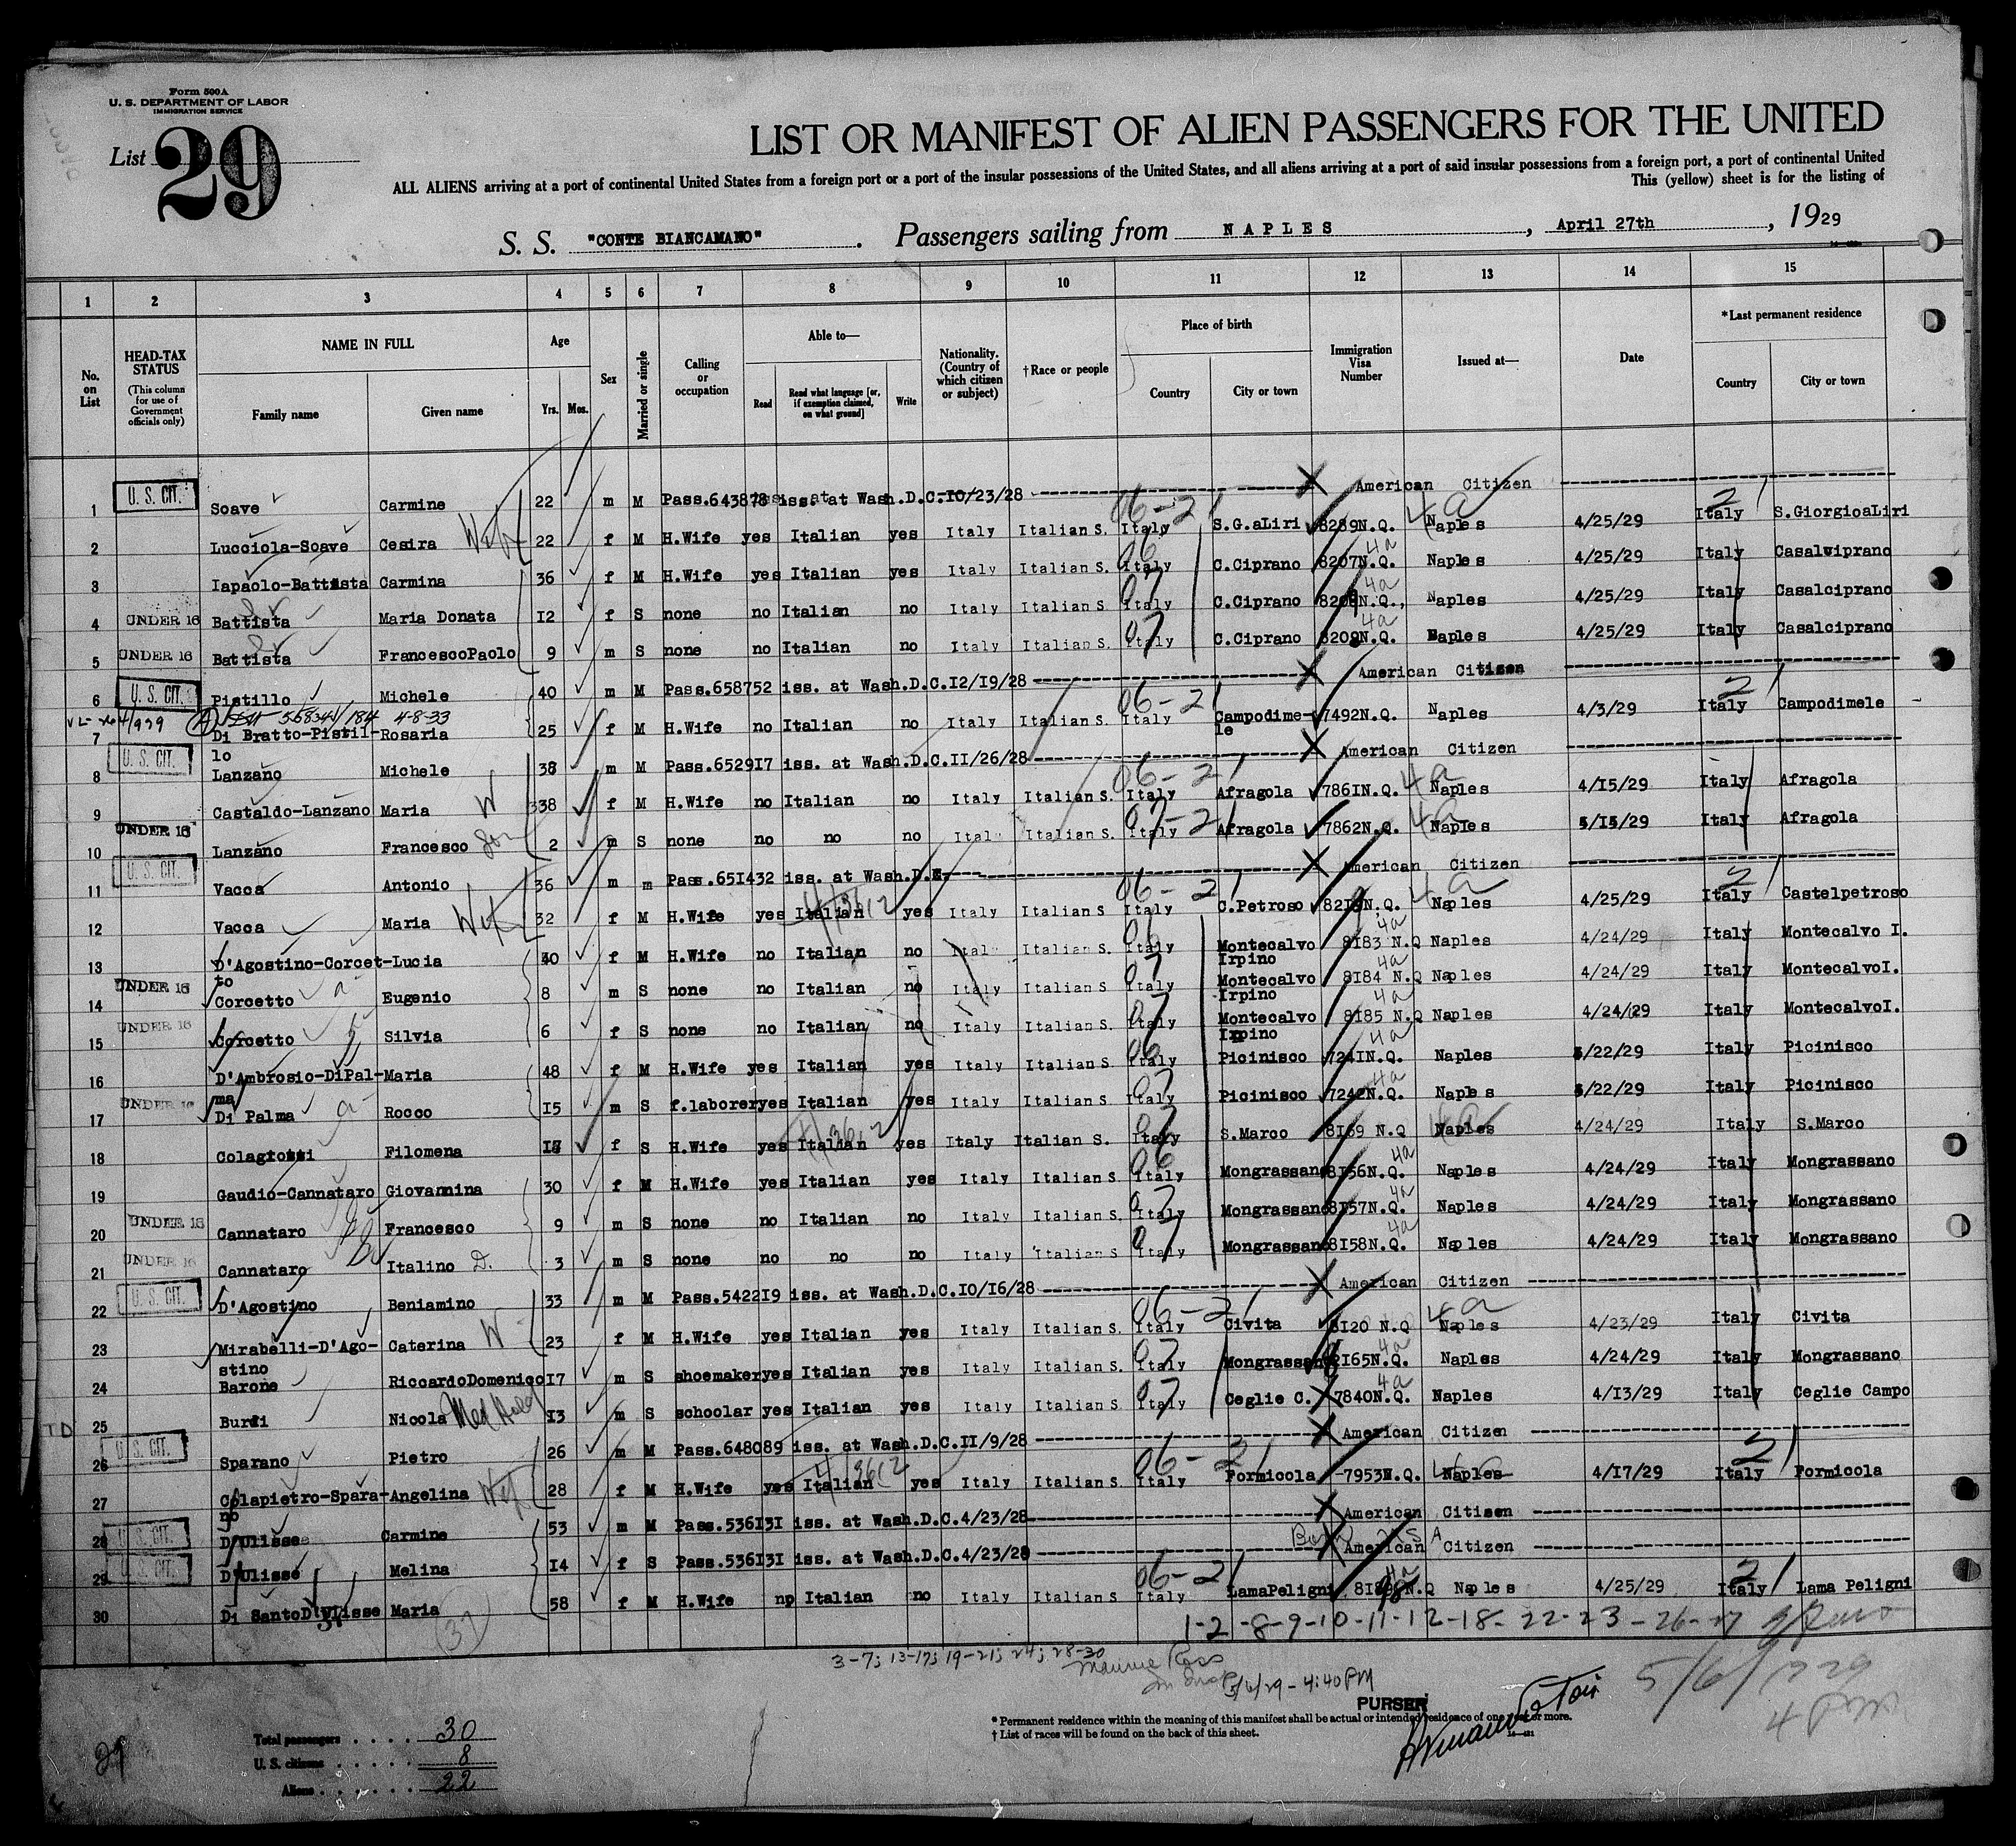 Form 500A
U. S. DEPARTMENT OF LABOR
IMMIGRATION SERVICE
List 29
LIST OR MANIFEST OF ALIEN PASSENGERS FOR THE UNITED
ALL ALIENS arriving at a port of continental United States from a foreign port or a port of the insular possessions of the United States, and all aliens arriving at a port of said insular possessions from a foreign port, a port of continental United
This (yellow) sheet is for the listing of
S. S. "CONTE BIANCAMANO". Passengers sailing from NAPLES, April 27th, 1929
1 2 3 4 5 6 7 8 9 10 11 12 13 14 15
No. on List
HEAD-TAX STATUS (This column for use of Government officials only)
NAME IN FULL Family name Given name
Age Yrs. Mos.
Sex
Married or single
Calling or occupation
Able to— Read Read what language [or, if exemption claimed, on what ground] Write
Nationality. (Country of which citizen or subject)
†Race or people
Place of birth Country City or town
Immigration Visa Number
Issued at—
Date
*Last permanent residence Country City or town
1 U. S. CIT. Soave Carmine 22 m M Pass.643878 iss. at Wash.D.C.10/23/28 American Citizen
2 Lucciola-Soave Cesira Wife 22 f M H.Wife yes Italian yes Italy Italian S. Italy 06-2 S.G.aLiri 8289N.Q. 4a Naples 4/25/29 Italy S.GiorgioaLiri
3 Iapaolo-Battista Carmina 36 f M H.Wife yes Italian yes Italy Italian S. Italy 06 C.Ciprano 8207N.Q. 4a Naples 4/25/29 Italy Casalwiprano
4 UNDER 16 Battista Maria Donata 12 f S none no Italian no Italy Italian S. Italy 07 C.Ciprano 8208N.Q., 4a Naples 4/25/29 Italy Casalciprano
5 UNDER 16 Battista FrancescoPaolo 9 m S none no Italian no Italy Italian S. Italy 07 C.Ciprano 8209N.Q. 4a Naples 4/25/29 Italy Casalciprano
6 U. S. CIT. Pistillo Michele 40 m M Pass.658752 iss. at Wash.D.C.12/19/28 American Citizen
4-8-33
7 Di Bratto-Pistil-lo Rosaria 25 f M H.Wife no Italian no Italy Italian S. Italy 06-2 Campodime-le 7492N.Q. Naples 4/3/29 Italy Campodimele
8 U. S. CIT. Lanzano Michele 38 m M Pass.652917 iss. at Wash.D.C.11/26/28 American Citizen
9 Castaldo-Lanzano Maria W 38 f M H.Wife no Italian no Italy Italian S. Italy 06-2 Afragola 7861N.Q. 4a Naples 4/15/29 Italy Afragola
10 UNDER 16 Lanzano Francesco Son 2 m S none no no no Italy Italian S. Italy 07-2 Afragola 7862N.Q. 4a Naples 5/15/29 Italy Afragola
11 U. S. CIT. Vacca Antonio 36 m m Pass.651432 iss. at Wash.D. American Citizen
12 Vacca Maria Wife 32 f M H.Wife yes Italian yes Italy Italian S Italy 06-2 C.Petroso N.Q. 4a Naples 4/25/29 Italy Castelpetroso
13 D'Agostino-Corcet-to Lucia 40 f M H.Wife no Italian no Italy Italian S. Italy 06 Montecalvo Irpino 8183 N.Q 4a Naples 4/24/29 Italy Montecalvo I.
14 UNDER 16 Corcetto Eugenio 8 m S none no Italian no Italy Italian S. Italy 07 Montecalvo Irpino 8184 N.Q 4a Naples 4/24/29 Italy MontecalvoI.
15 UNDER 16 Corcetto Silvia 6 f S none no Italian no Italy Italian S. Italy 07 Montecalvo Irpino 8185 N.Q 4a Naples 4/24/29 Italy MontecalvoI.
16 D'Ambrosio-DiPal-ma Maria 48 f M H.Wife yes Italian yes Italy Italian S. Italy 06 Picinisco 7241N.Q. 4a Naples /22/29 Italy Picinisco
17 UNDER 16 Di Palma Rocco 15 m S f.laborer yes Italian yes Italy Italian S. Italy 07 Picinisco 7242N.Q. 4a Naples /22/29 Italy Picinisco
18 Filomena f S H.Wife yes Italian yes Italy Italian S. Italy 07 S.Marco 8169 N.Q 4a Naples 4/24/29 Italy S.Marco
19 Gaudio-Cannataro Giovannina 30 f M H.Wife yes Italian yes Italy Italian S. Italy 06 Mongrassano 8156N.Q. 4a Naples 4/24/29 Italy Mongrassano
20 UNDER 16 Cannataro Francesco 9 m S none no Italian no Italy Italian S. Italy 07 Mongrassano 8157N.Q. 4a Naples 4/24/29 Italy Mongrassano
21 UNDER 16 Cannataro Italino D. 3 m S none no no no Italy Italian S Italy 07 Mongrassano 8158N.Q. 4a Naples 4/24/29 Italy Mongrassano
22 U. S. CIT. D'Agostino Beniamino 33 m M Pass.542219 iss. at Wash.D.C.10/16/28 American Citizen
23 Mirabelli-D'Ago-stino Caterina W 23 f M H.Wife yes Italian yes Italy Italian S. Italy 06-2 Civita 8120 N.Q 4a Naples 4/23/29 Italy Civita
24 Barone RiccardoDomenico 17 m S shoemaker yes Italian yes Italy Italian S. Italy 07 Mongrassano 8165N.Q. 4a Naples 4/24/29 Italy Mongrassano
25 Nicola Med Held 13 m S schoolar yes Italian yes Italy Italian S. Italy 07 Ceglie C. 7840N.Q. 4a Naples 4/13/29 Italy Ceglie Campo
26 U. S. CIT. Sparano Pietro 26 m M Pass.648089 iss. at Wash.D.C.11/9/28 American Citizen
27 Colapietro-Spara-no Angelina Wife 28 f M H.Wife yes Italian yes Italy Italian S. Italy 06-2 Formicola 7953N.Q. 4a Naples 4/17/29 Italy Formicola
28 U. S. CIT. D'Ulisse Carmine 53 m M Pass.536131 iss. at Wash.D.C.4/23/28 American Citizen
29 U. S. CIT. D'Ulisse Melina 14 f S Pass.536131 iss. at Wash.D.C.4/23/28 Born U S A American Citizen
30 Di SantoD'Ulisse Maria 58 f M H.Wife np Italian no Italy Italian S. Italy 06-2 LamaPeligni N.Q 4a Naples 4/25/29 Italy Lama Peligni
1-2-8-9-10-11-12-18-22-23-26-27
3-7; 13-17; 19-21; 24; 28-30
5/6/29 - 4:40 PM
PURSER
* Permanent residence within the meaning of this manifest shall be actual or intended residence of one year or more.
† List of races will be found on the back of this sheet.
Total passengers . . . . 30
U. S. citizens . . . . . 8
Aliens . . . . . . 22
29